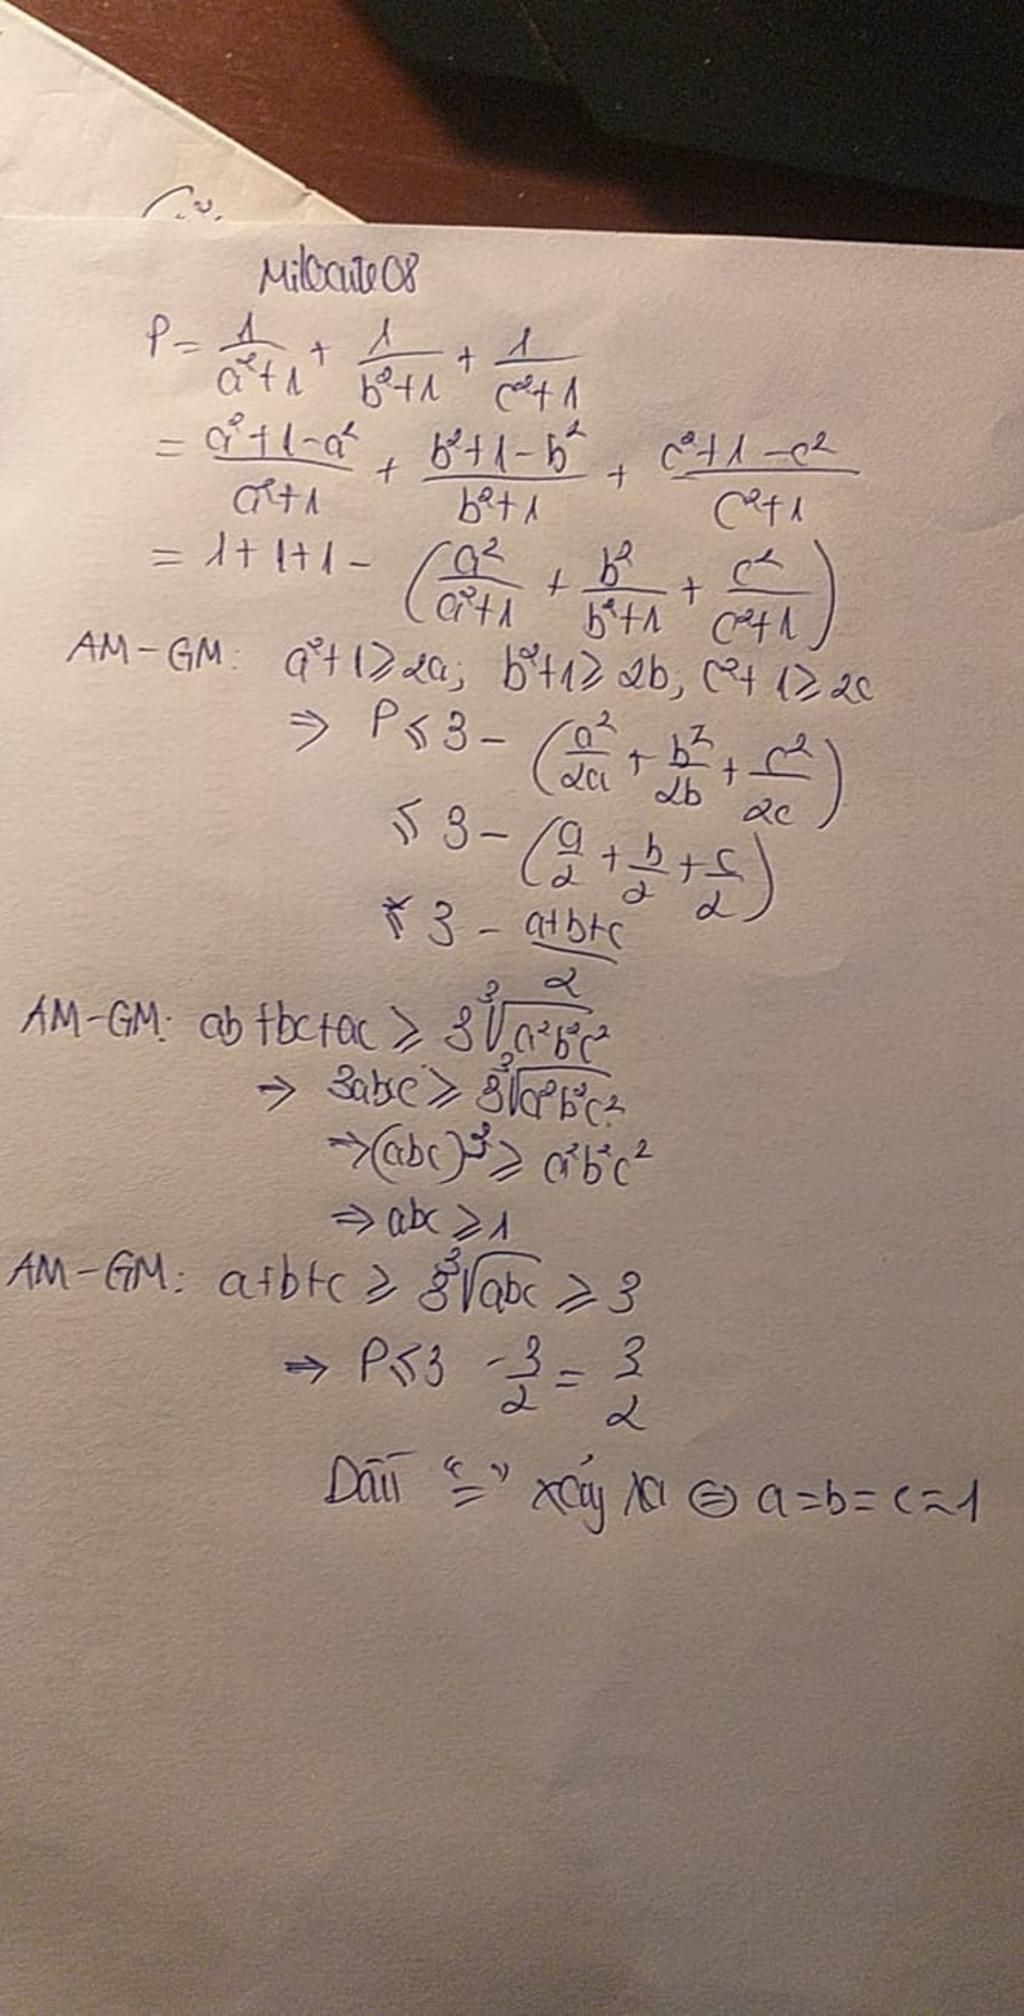 Milocute08
P = 1/(a²+1) + 1/(b²+1) + 1/(c²+1)
= (a²+1-a²)/(a²+1) + (b²+1-b²)/(b²+1) + (c²+1-c²)/(c²+1)
= 1+1+1 - (a²/(a²+1) + b²/(b²+1) + c²/(c²+1))
AM-GM: a²+1 ≥ 2a; b²+1 ≥ 2b, c²+1 ≥ 2c
⇒ P ≤ 3 - (a²/2a + b²/2b + c²/2c)
≤ 3 - (a/2 + b/2 + c/2)
≤ 3 - (a+b+c)/2
AM-GM: ab+bc+ac ≥ 3∛(a²b²c²)
⇒ 3abc ≥ 3∛(a²b²c²)
⇒ (abc)³ ≥ a²b²c²
⇒ abc ≥ 1
AM-GM: a+b+c ≥ 3∛(abc) ≥ 3
⇒ P ≤ 3 - 3/2 = 3/2
Dấu "=" xảy ra ⇔ a=b=c=1